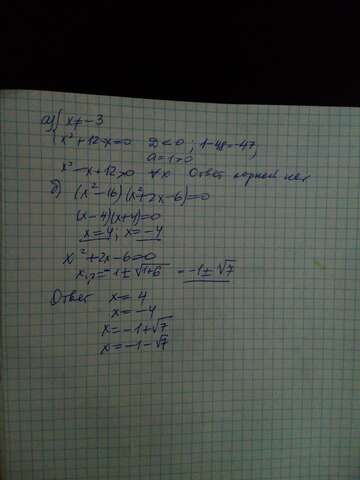 а) { x≠-3
x²+12-x=0 D<0; 1-48=-47,
a=1>0
x²-x+12>0 ∀x Ответ корней нет
б) (x²-16)(x²+2x-6)=0
(x-4)(x+4)=0
x=4; x=-4
x²+2x-6=0
x₁,₂=-1±√1+6 = -1±√7
Ответ x=4
x=-4
x=-1+√7
x=-1-√7